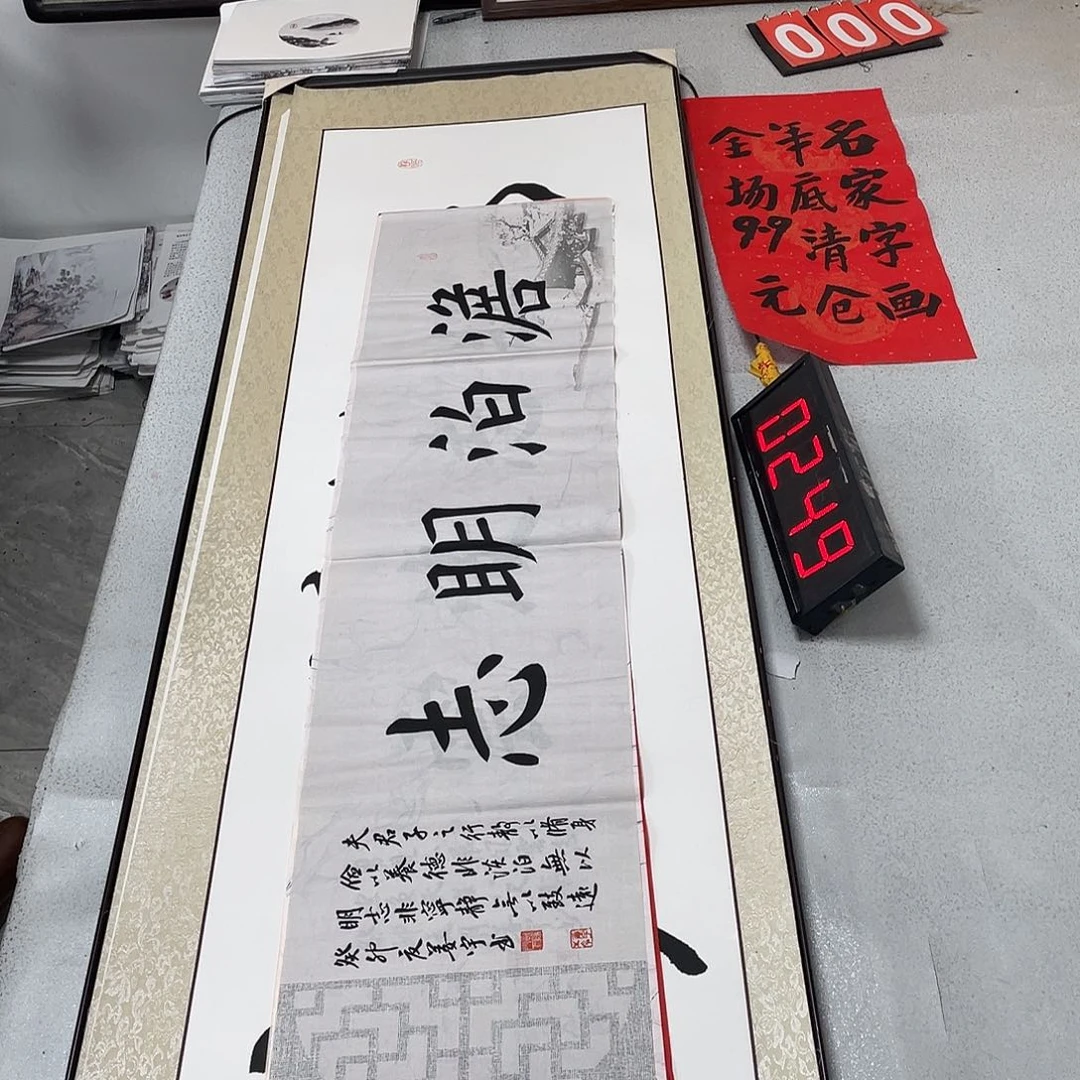 000
名家字画
年底清仓
全场99元
0249
澹泊明志
夫君子之行静以脩身
俭以養德非淡泊無以
明志非寧静無以致遠
癸卯夏姜宇书